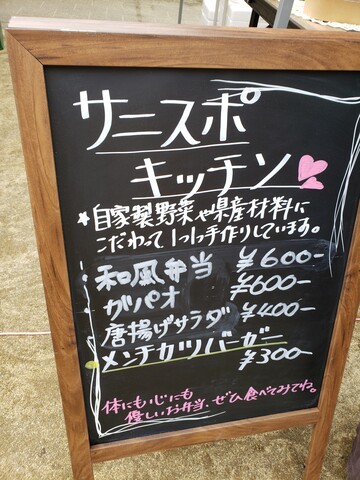 サニスポ
キッチン
★自家製野菜や県産材料に
こだわって1つ1つ手作りしています。
和風弁当 ¥600-
ガパオ ¥600-
唐揚げサラダ ¥400-
メンチカツバーガー
¥300-
体にも心にも
優しいお弁当、ぜひ食べてみてね。